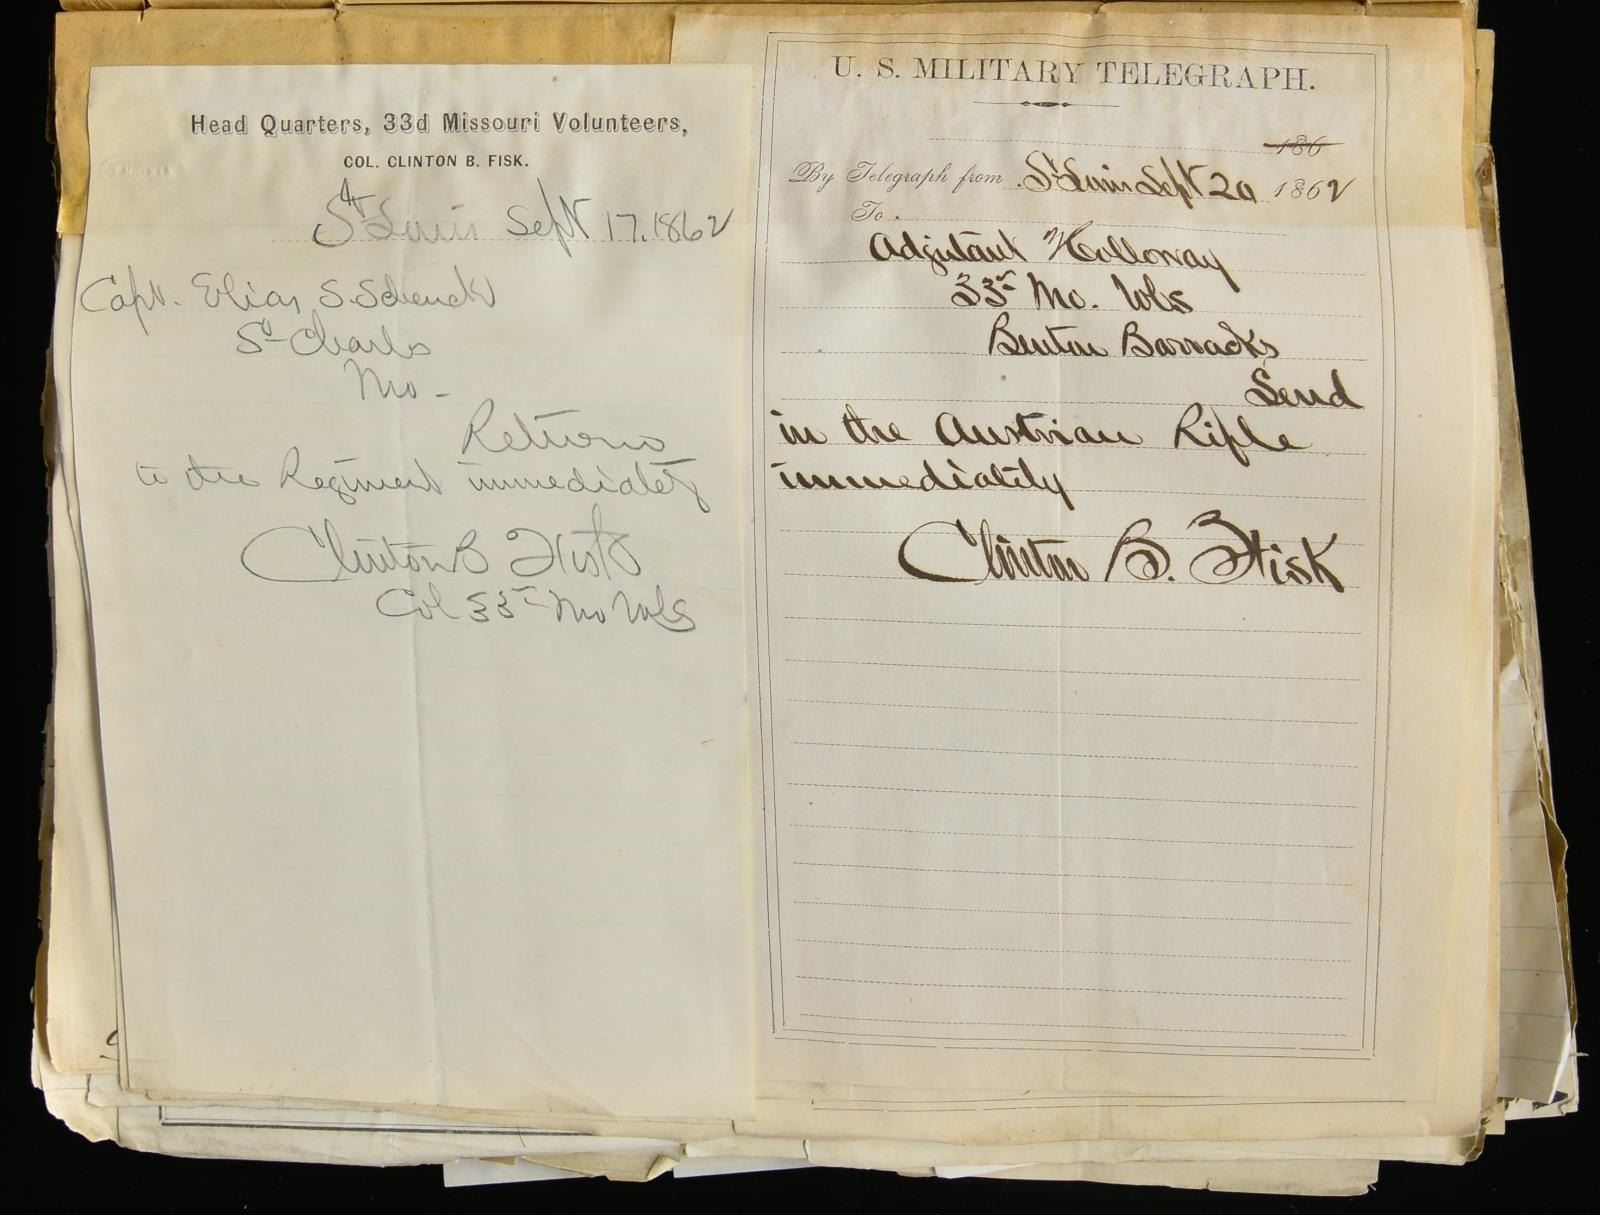 Head Quarters, 33d Missouri Volunteers,
COL. CLINTON B. FISK.
St Louis Sept 17, 1862
Capt. Elias S. Schenck
St Charles
Mo -
Return
to the Regiment immediately
Clinton B Fisk
Col 33d Mo Vols
U. S. MILITARY TELEGRAPH.
186
By Telegraph from St Louis Sept 20 1862
To
Adjutant Holloway
33d Mo. Vols
Benton Barracks
Send
in the Austrian Rifle
immediately
Clinton B. Fisk